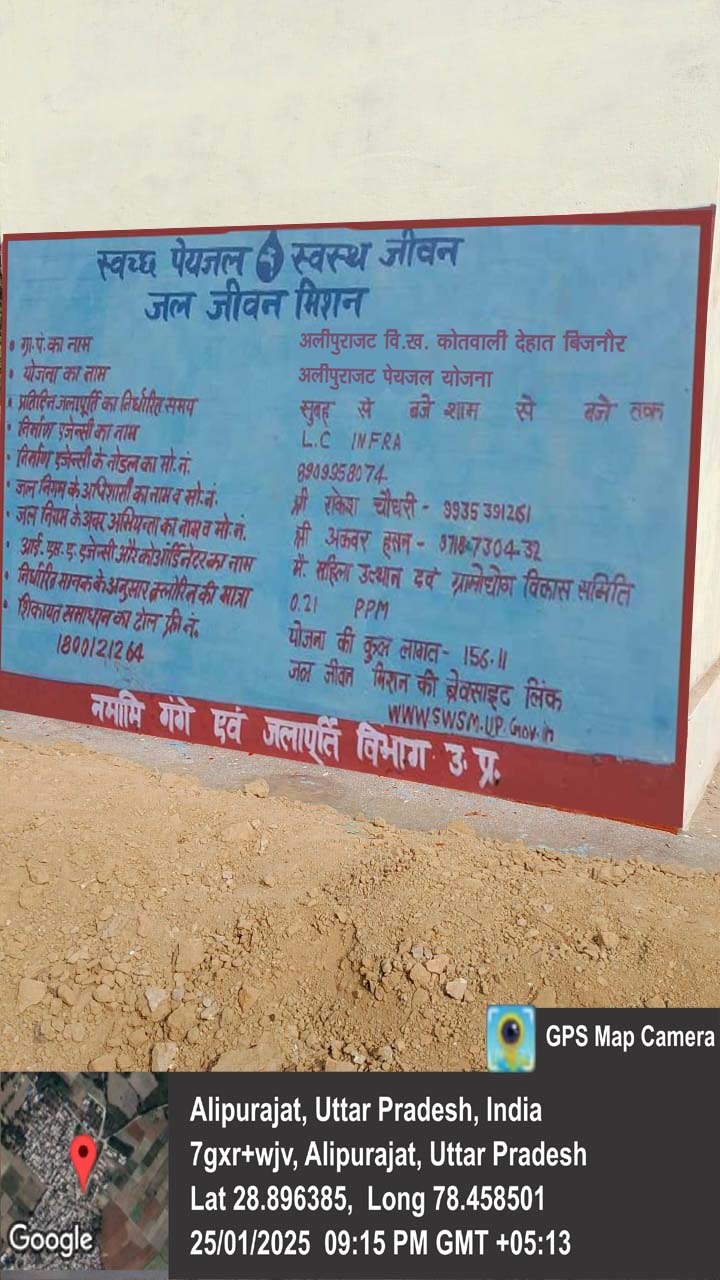 स्वच्छ पेयजल स्वस्थ जीवन
जल जीवन मिशन
ग्रा.पं.का नाम अलीपुराजट वि.ख. कोतवाली देहात बिजनौर
योजना का नाम अलीपुराजट पेयजल योजना
प्रतिदिन जलापूर्ति का निर्धारित समय सुबह से बजे शाम से बजे तक
निर्माण एजेन्सी का नाम L.C INFRA
निर्माण एजेन्सी के नोडल का मो.नं. 8909958074
जल निगम के अधिशासी का नाम व मो.नं. श्री राकेश चौधरी - 9935391261
जल निगम के अवर अभियन्ता का नाम व मो.नं. श्री अकबर हसन - 9718-7304-32
आई.एस.ए.एजेन्सी और कोऑर्डिनेटर का नाम मै. महिला उत्थान एवं ग्रामोद्योग विकास समिति
निर्धारित मानक के अनुसार क्लोरिन की मात्रा 0.21 PPM
शिकायत समाधान का टोल फ्री नं. योजना की कुल लागत - 156.11
1800121264 जल जीवन मिशन की ब्रेक्साइट लिंक
WWW.SWSM.UP.Gov.in
नमामि गंगे एवं जलापूर्ति विभाग उ.प्र.
GPS Map Camera
Alipurajat, Uttar Pradesh, India
7gxr+wjv, Alipurajat, Uttar Pradesh
Lat 28.896385, Long 78.458501
25/01/2025 09:15 PM GMT +05:13
Google